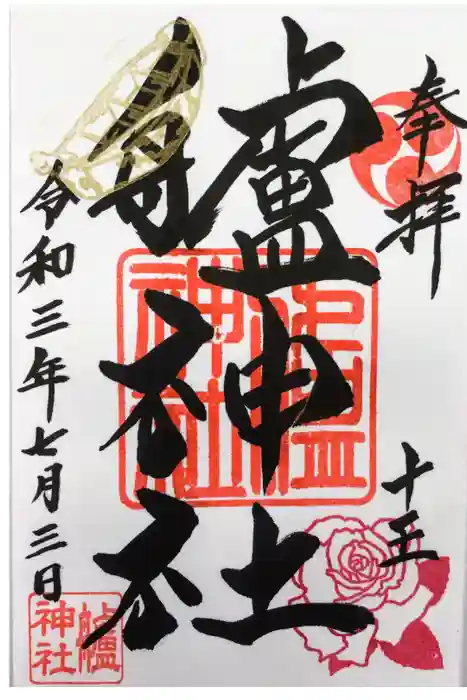 奉拝
十王
艫神社
令和三年七月三日
艫神社
艫神社